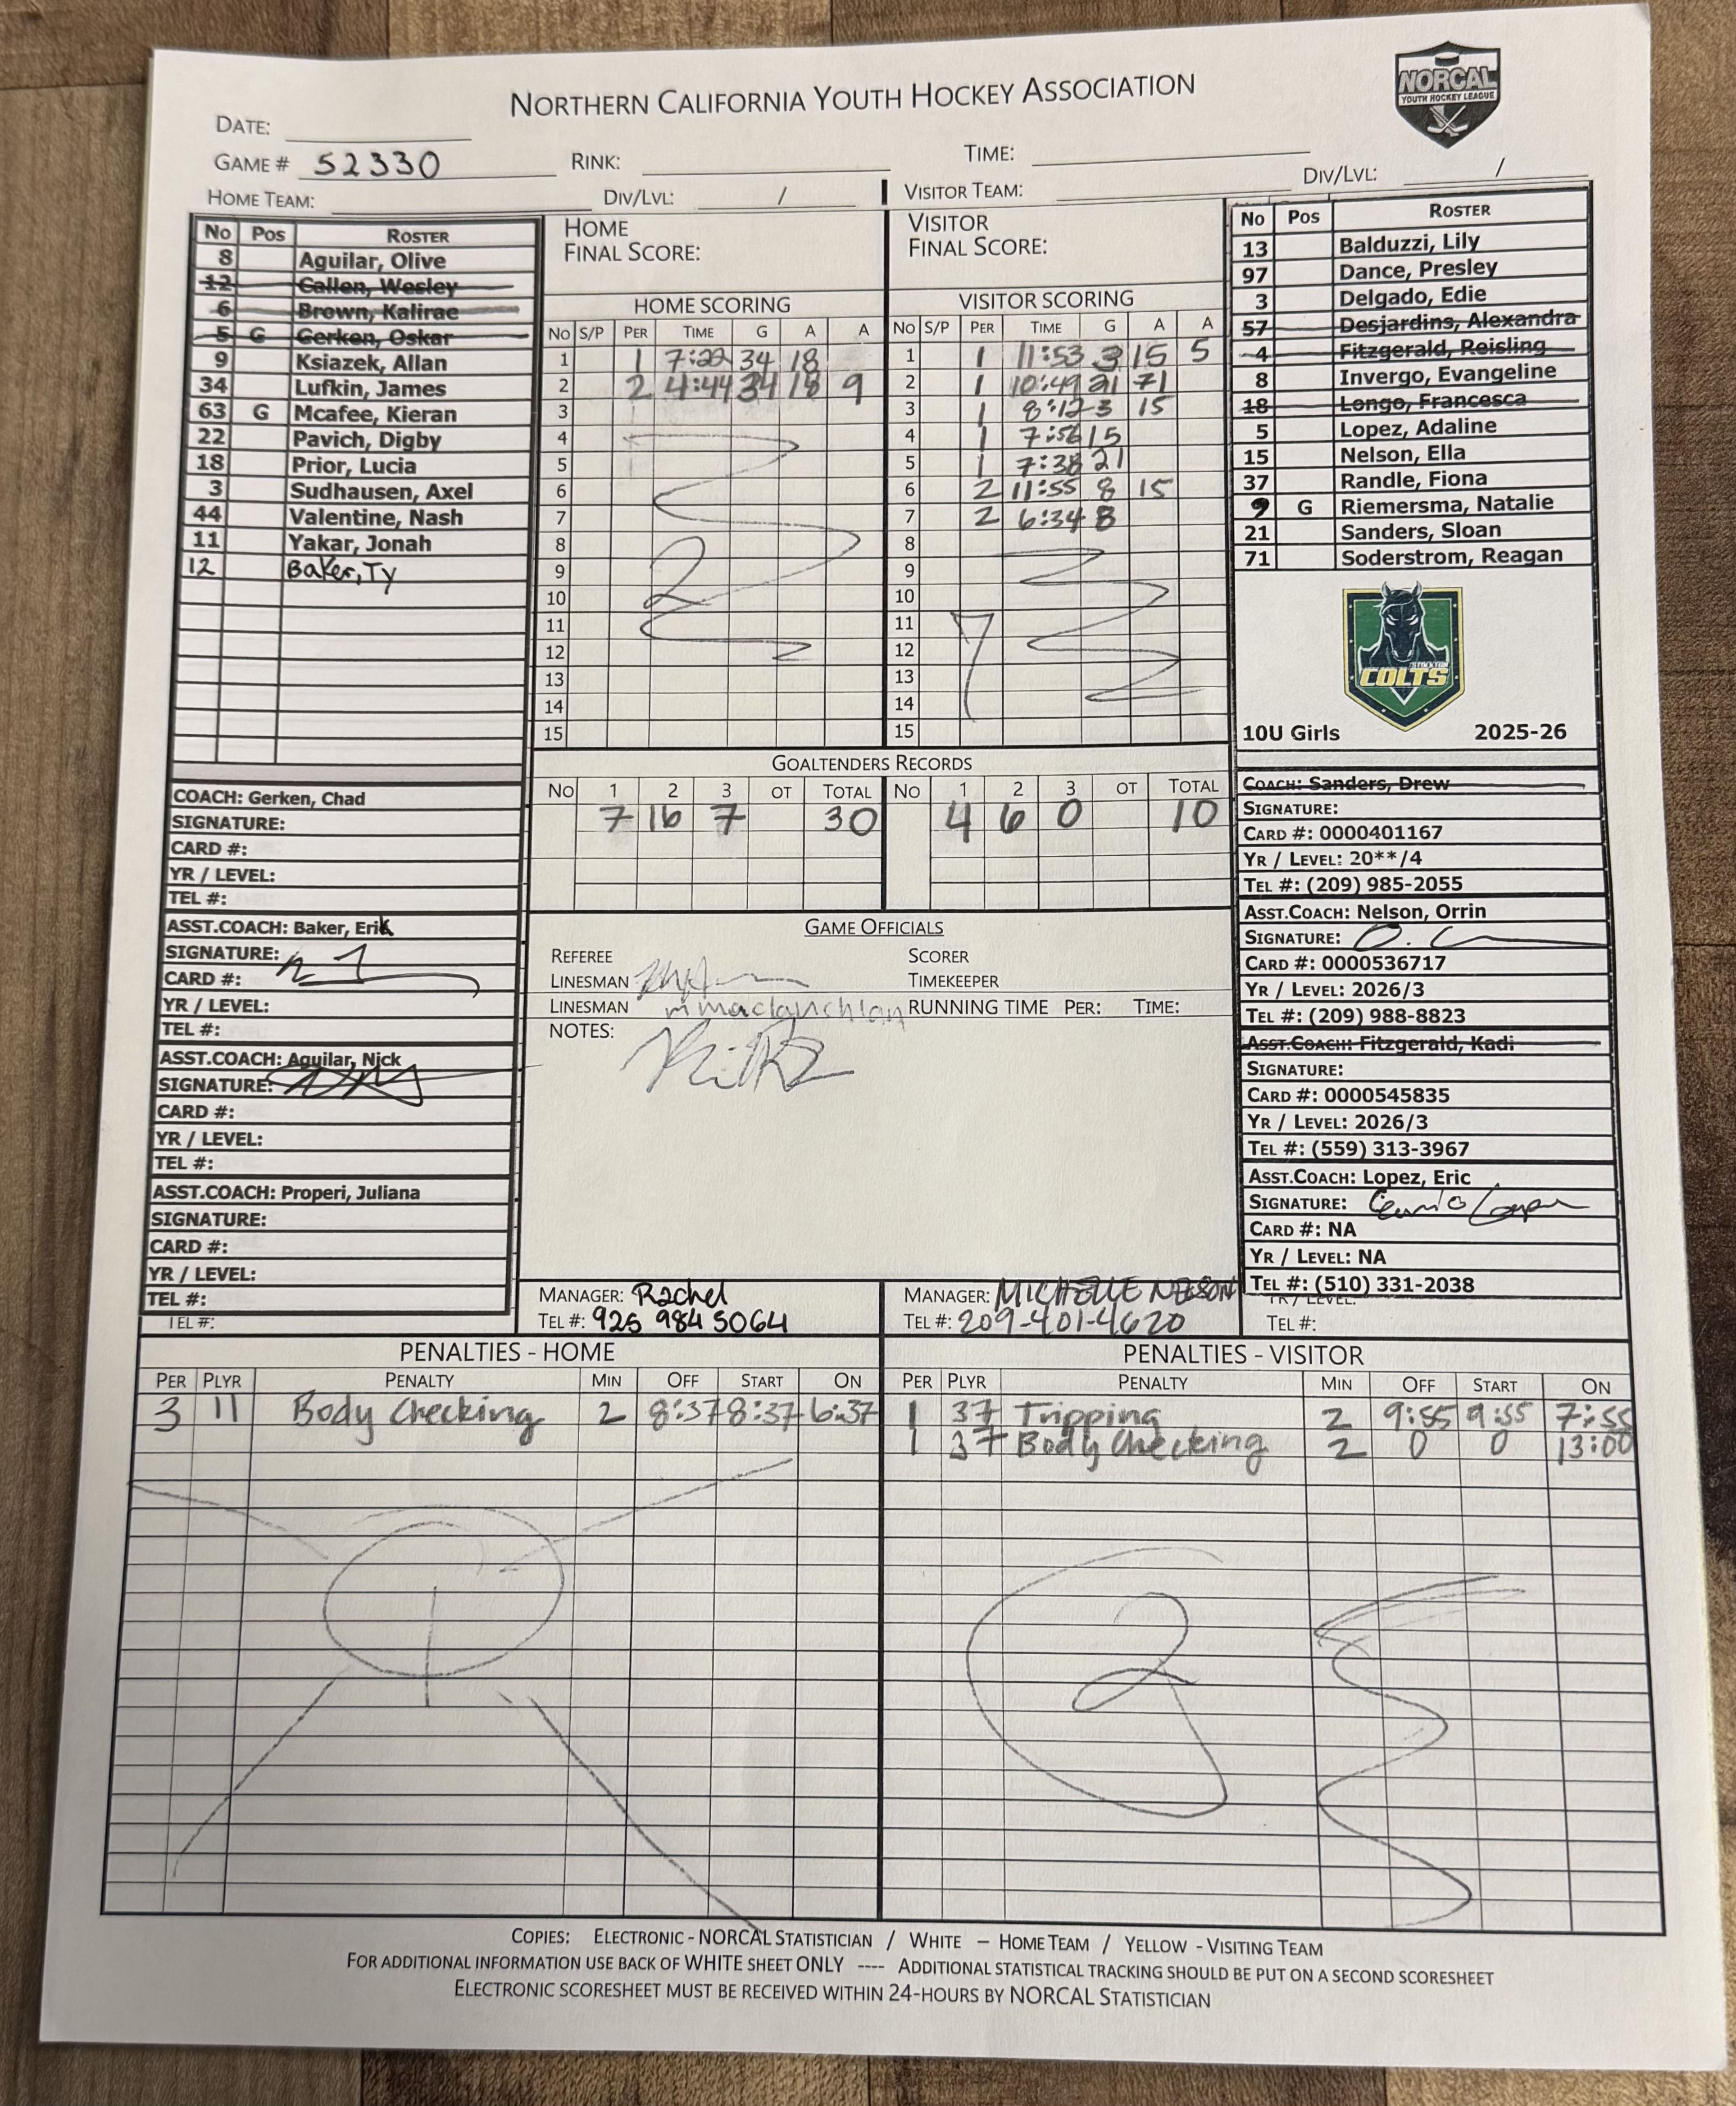 NORTHERN CALIFORNIA YOUTH HOCKEY ASSOCIATION
NORCAL
YOUTH HOCKEY LEAGUE
DATE:
GAME # 52330 RINK: TIME: DIV/LVL: /
HOME TEAM: DIV/LVL: / VISITOR TEAM:
No Pos ROSTER
8 Aguilar, Olive
12 Callen, Wesley
6 Brown, Kalirae
5 G Gerken, Oskar
9 Ksiazek, Allan
34 Lufkin, James
63 G Mcafee, Kieran
22 Pavich, Digby
18 Prior, Lucia
3 Sudhausen, Axel
44 Valentine, Nash
11 Yakar, Jonah
12 Baker, Ty
HOME
FINAL SCORE:
HOME SCORING
No S/P PER TIME G A A
1 1 7:22 34 18
2 2 4:44 34 18 9
3
4
5
6
7
8
9
10
11
12
13
14
15
2
VISITOR
FINAL SCORE:
VISITOR SCORING
No S/P PER TIME G A A
1 1 11:53 3 15 5
2 1 10:49 21 71
3 1 8:12 3 15
4 1 7:56 15
5 1 7:38 21
6 2 11:55 8 15
7 2 6:34 8
8
9
10
11
12
13
14
15
7
No Pos ROSTER
13 Balduzzi, Lily
97 Dance, Presley
3 Delgado, Edie
57 Desjardins, Alexandra
4 Fitzgerald, Reisling
8 Invergo, Evangeline
18 Longo, Francesca
5 Lopez, Adaline
15 Nelson, Ella
37 Randle, Fiona
9 G Riemersma, Natalie
21 Sanders, Sloan
71 Soderstrom, Reagan
STOCKTON
COLTS
10U Girls 2025-26
GOALTENDERS RECORDS
No 1 2 3 OT TOTAL No 1 2 3 OT TOTAL
7 16 7 30 4 6 0 10
COACH: Gerken, Chad
SIGNATURE:
CARD #:
YR / LEVEL:
TEL #:
ASST.COACH: Baker, Erik
SIGNATURE:
CARD #:
YR / LEVEL:
TEL #:
ASST.COACH: Aguilar, Nick
SIGNATURE:
CARD #:
YR / LEVEL:
TEL #:
ASST.COACH: Properi, Juliana
SIGNATURE:
CARD #:
YR / LEVEL:
TEL #:
TEL #:
GAME OFFICIALS
REFEREE SCORER
LINESMAN TIMEKEEPER
LINESMAN m maclauchlan RUNNING TIME PER: TIME:
NOTES:
COACH: Sanders, Drew
SIGNATURE:
CARD #: 0000401167
YR / LEVEL: 20**/4
TEL #: (209) 985-2055
ASST.COACH: Nelson, Orrin
SIGNATURE:
CARD #: 0000536717
YR / LEVEL: 2026/3
TEL #: (209) 988-8823
ASST.COACH: Fitzgerald, Kadi
SIGNATURE:
CARD #: 0000545835
YR / LEVEL: 2026/3
TEL #: (559) 313-3967
ASST.COACH: Lopez, Eric
SIGNATURE:
CARD #: NA
YR / LEVEL: NA
TEL #: (510) 331-2038
YR / LEVEL:
TEL #:
MANAGER: Rachel
TEL #: 925 984 5064
MANAGER: MICHELLE NELSON
TEL #: 209-401-4620
PENALTIES - HOME
PER PLYR PENALTY MIN OFF START ON
3 11 Body Checking 2 8:37 8:37 6:37
1
PENALTIES - VISITOR
PER PLYR PENALTY MIN OFF START ON
1 37 Tripping 2 9:55 9:55 7:55
1 37 Body Checking 2 0 0 13:00
2
COPIES: ELECTRONIC - NORCAL STATISTICIAN / WHITE – HOME TEAM / YELLOW - VISITING TEAM
FOR ADDITIONAL INFORMATION USE BACK OF WHITE SHEET ONLY ---- ADDITIONAL STATISTICAL TRACKING SHOULD BE PUT ON A SECOND SCORESHEET
ELECTRONIC SCORESHEET MUST BE RECEIVED WITHIN 24-HOURS BY NORCAL STATISTICIAN